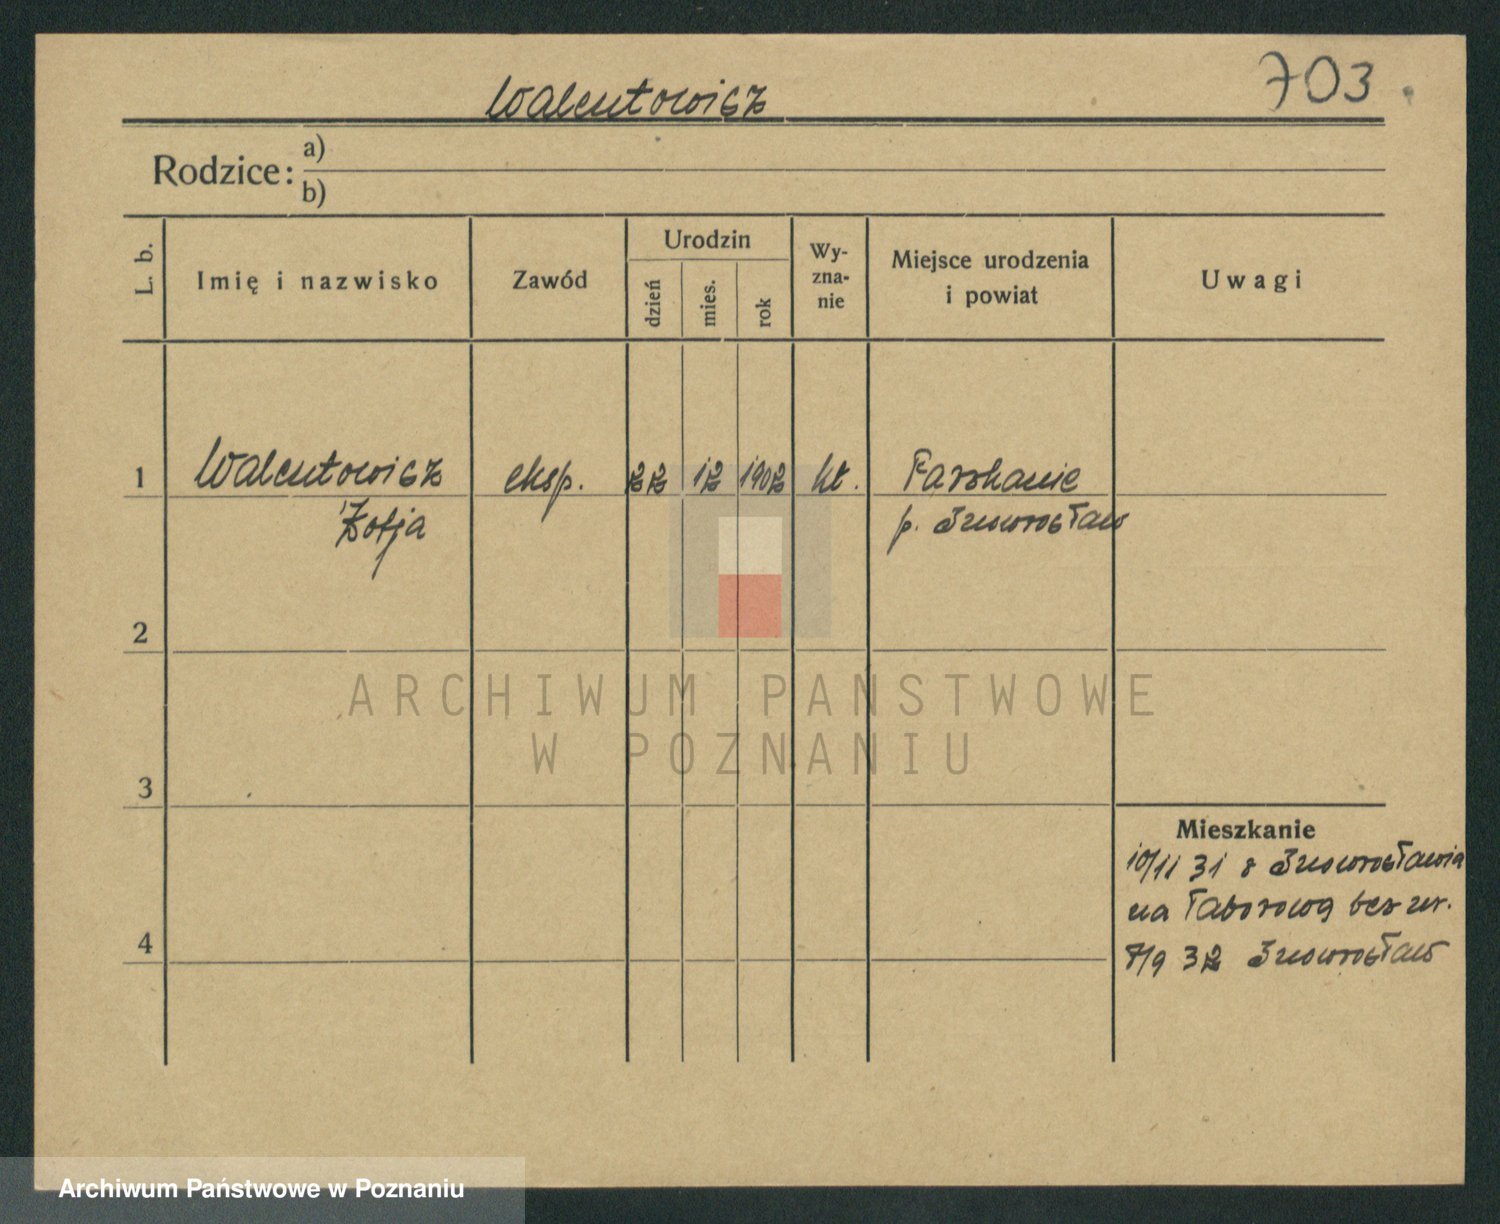 703
Walentowicz
Rodzice: a)
b)
L. b.
Imię i nazwisko
Zawód
Urodzin
dzień
mies.
rok
Wy-
zna-
nie
Miejsce urodzenia
i powiat
Uwagi
1
Walentowicz
Zofja
eksp.
22
12
1902
kt.
p. Inowrocław
2
3
4
Mieszkanie
10/11 31 z Inowrocławia
na Taborową bez nr.
7/9 32 Inowrocław
ARCHIWUM PAŃSTWOWE
W POZNANIU
Archiwum Państwowe w Poznaniu